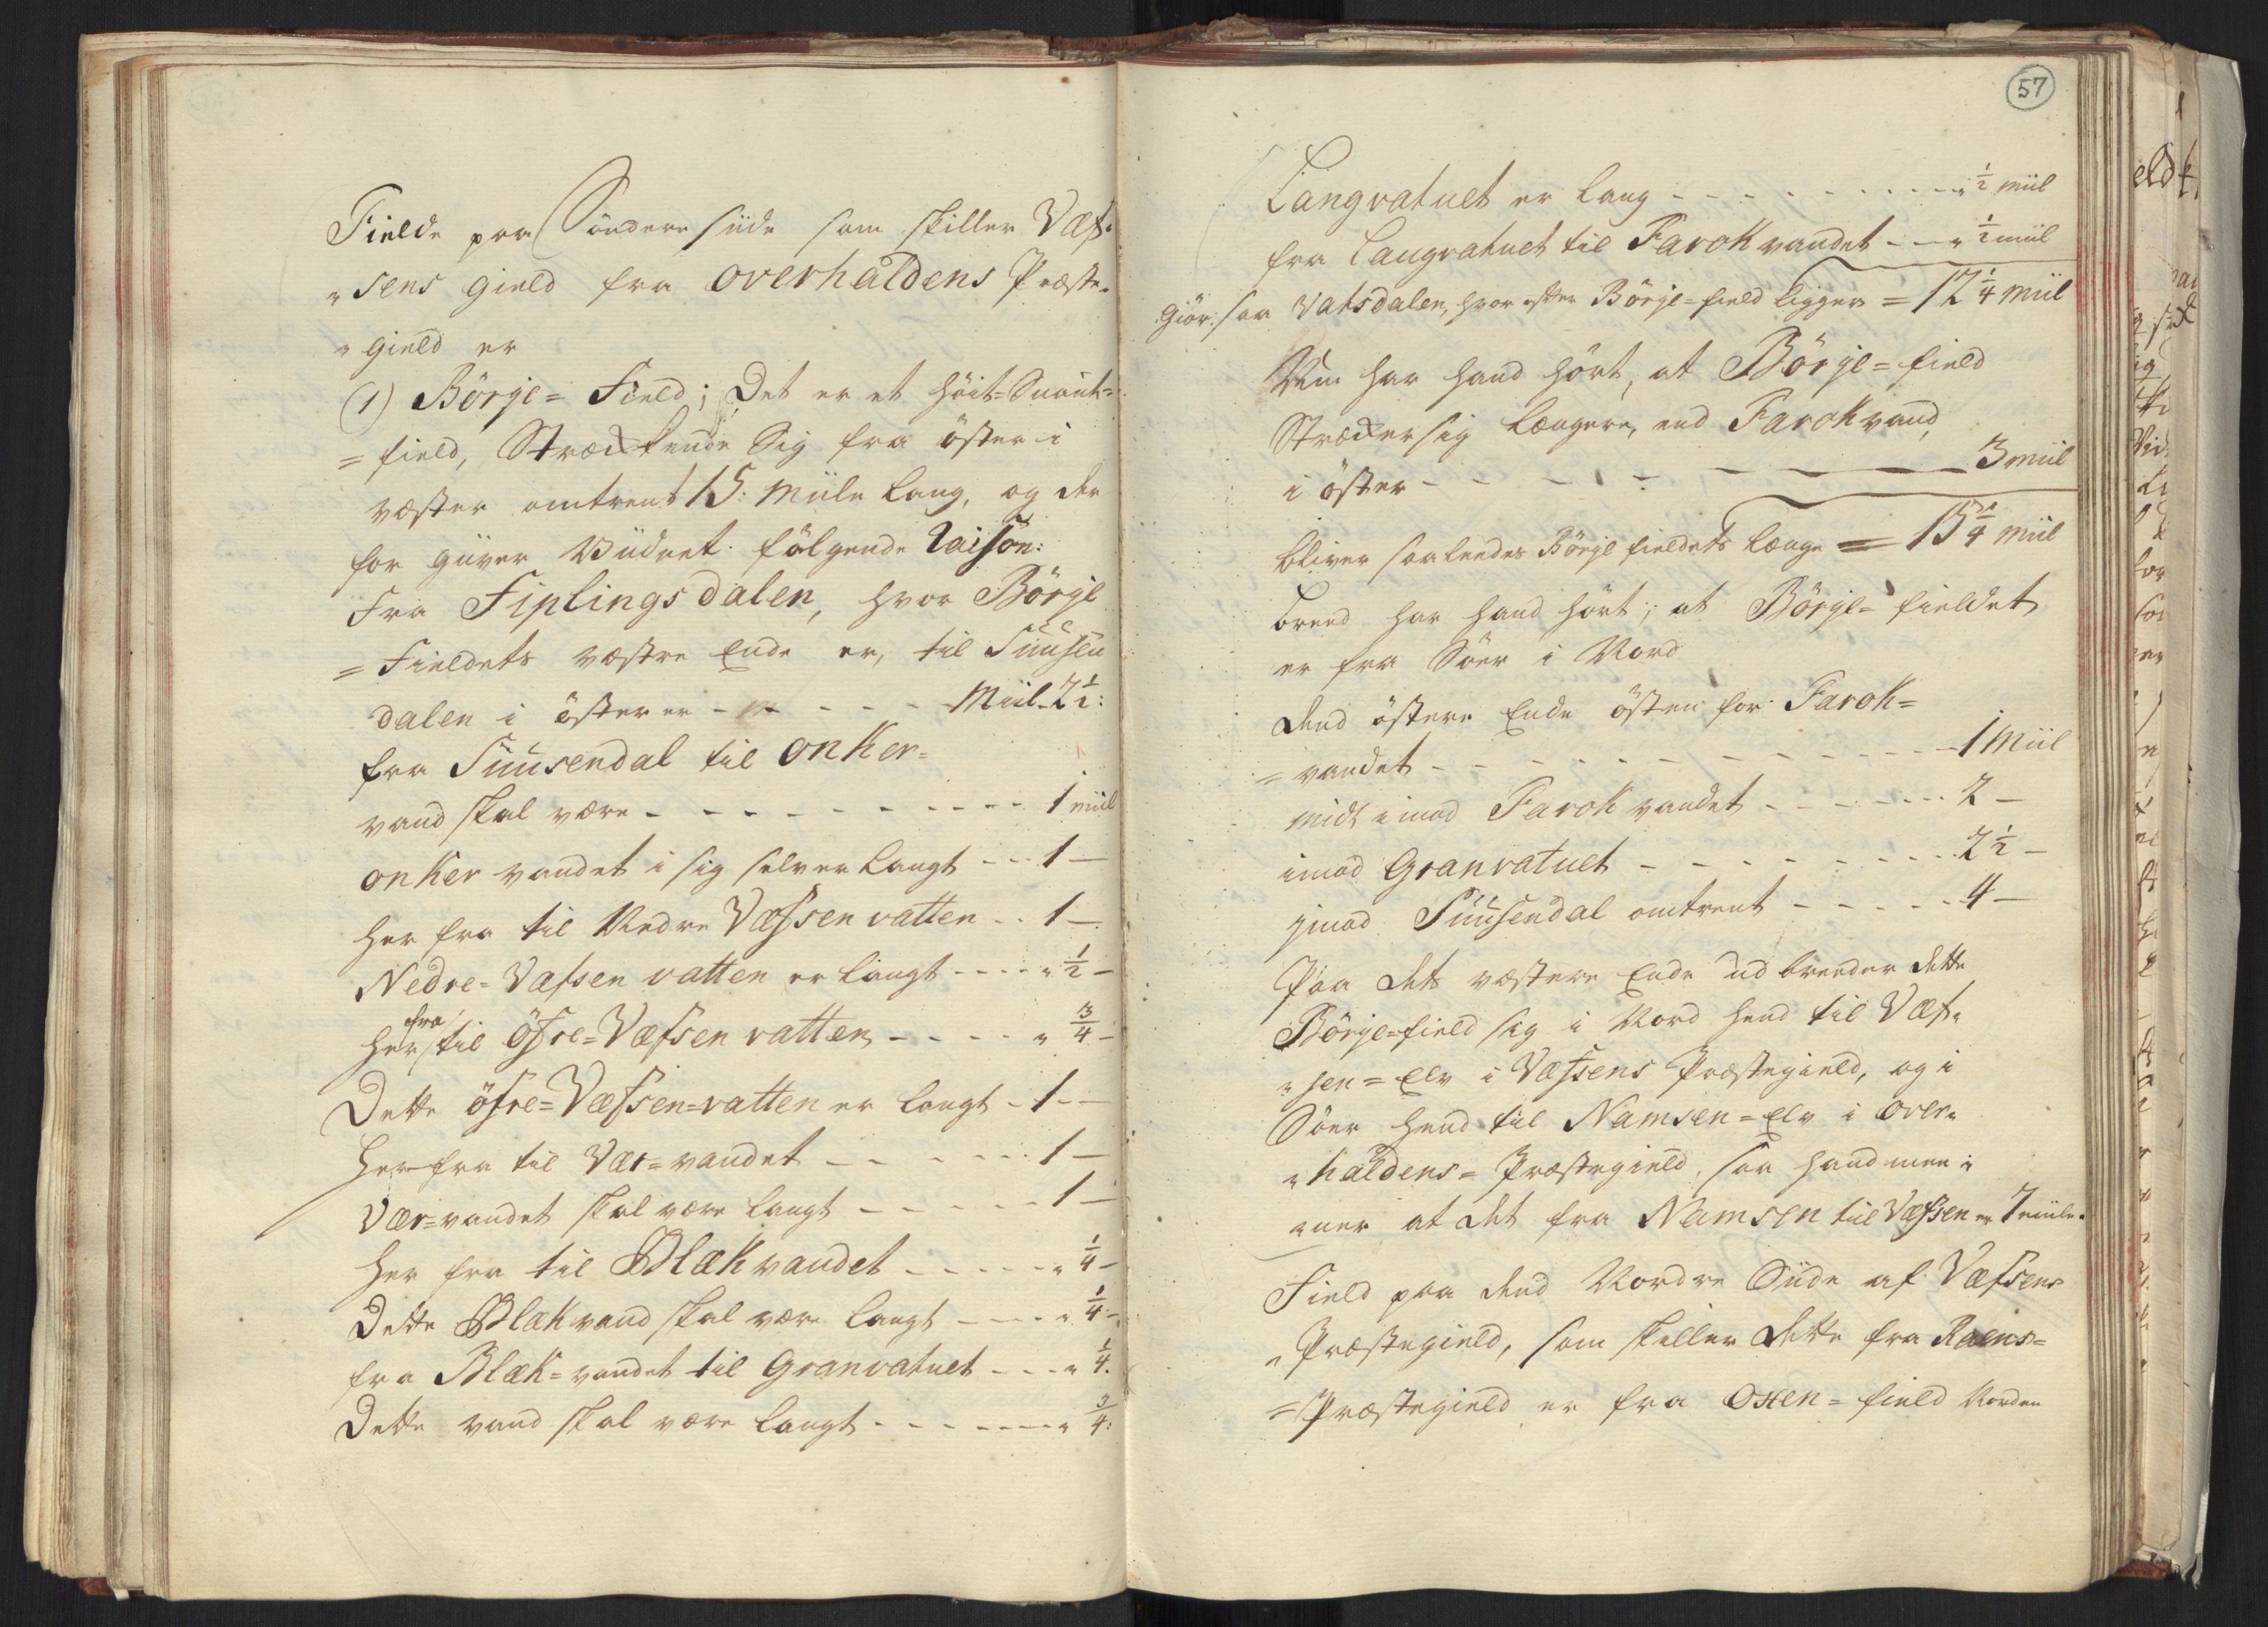 Fielde paa Söndere siide som skiller Væf„
„sens gield fra overhaldens Præste„
„gield er
(1) Börje= Field; Det er et höit=Snout=
=field, Strækkende Sig fra öster i
væster omtrent 15: miile lang, og der
for giiver Viidnet følgende raison:
Fra Fiplingsdalen, hvor Börje
=Fieldets væstre Ende er, til Suusen
dalen i öster er - - - - - Miil 2½:
fra Suusendal til onker=
vand skal være - - - - - - - - 1 miil
onker vandet i sig selver langt - - - 1 —
her fra til Nedre Væfsen vatten - - 1 —
Nedre=Væfsen vatten er langt - - - - „ ½ —
her fra til öfre=Væfsen vatten - - - - „ ¾ —
Dette öfre=Væfsen=vatten er langt - 1 - —
her fra til Vær=vandet - - - - - - 1 —
Vær=vandet skal være langt - - - - - 1 —
her fra til Blæk vandet - - - - - „ ¼ —
Dette Blæk vand skal være langt - - - - „ ¼ —
fra Blæk=vandet til Granvatnet - - - „ ¼.
Dette vand skal være langt - - - - - - „ ¾:
57
Langvatnet er lang - - - - - - - - - - „ ½ miil
fra Langvatnet til Farok vandet - - - „ ½ miil
giör saa Vatsdalen, hvor efter Börje=field ligger = 12¼ miil
Men har hand hört, at Börje=field
Strækker sig længere, end Farok vand
i öster - - - - - - - - - - 3 miil
bliver saaleedes Börje fieldets længe = 15¼ miil
breed har hand hört; at Börje=fieldet
er fra Söer i Nord
dend östere Ende östen for Farok=
=vandet - - - - - - - - - - - - 1 Miil
midt imod Farok vandet - - - - - - 2 —
imod Granvatnet - - - - - - - - - 2½ —
jmod Suusendal omtrent - - - - - 4 —
Paa dets væstere Ende ud breeder dette
Börje=field sig i Nord hend til Væf„
„sen=Elv i Væfsens Præstegield, og i
Söer hend til Namsen=Elv i over„
„haldens=Præstegield, saa hand mee„
„ner at det fra Namsen til Væfsen er 7 miile.
Field paa dend Nordre Siide af Væfsens
„Præstegield, som skiller dette fra Raens=
=Præstegield er fra Oxen=field Norden